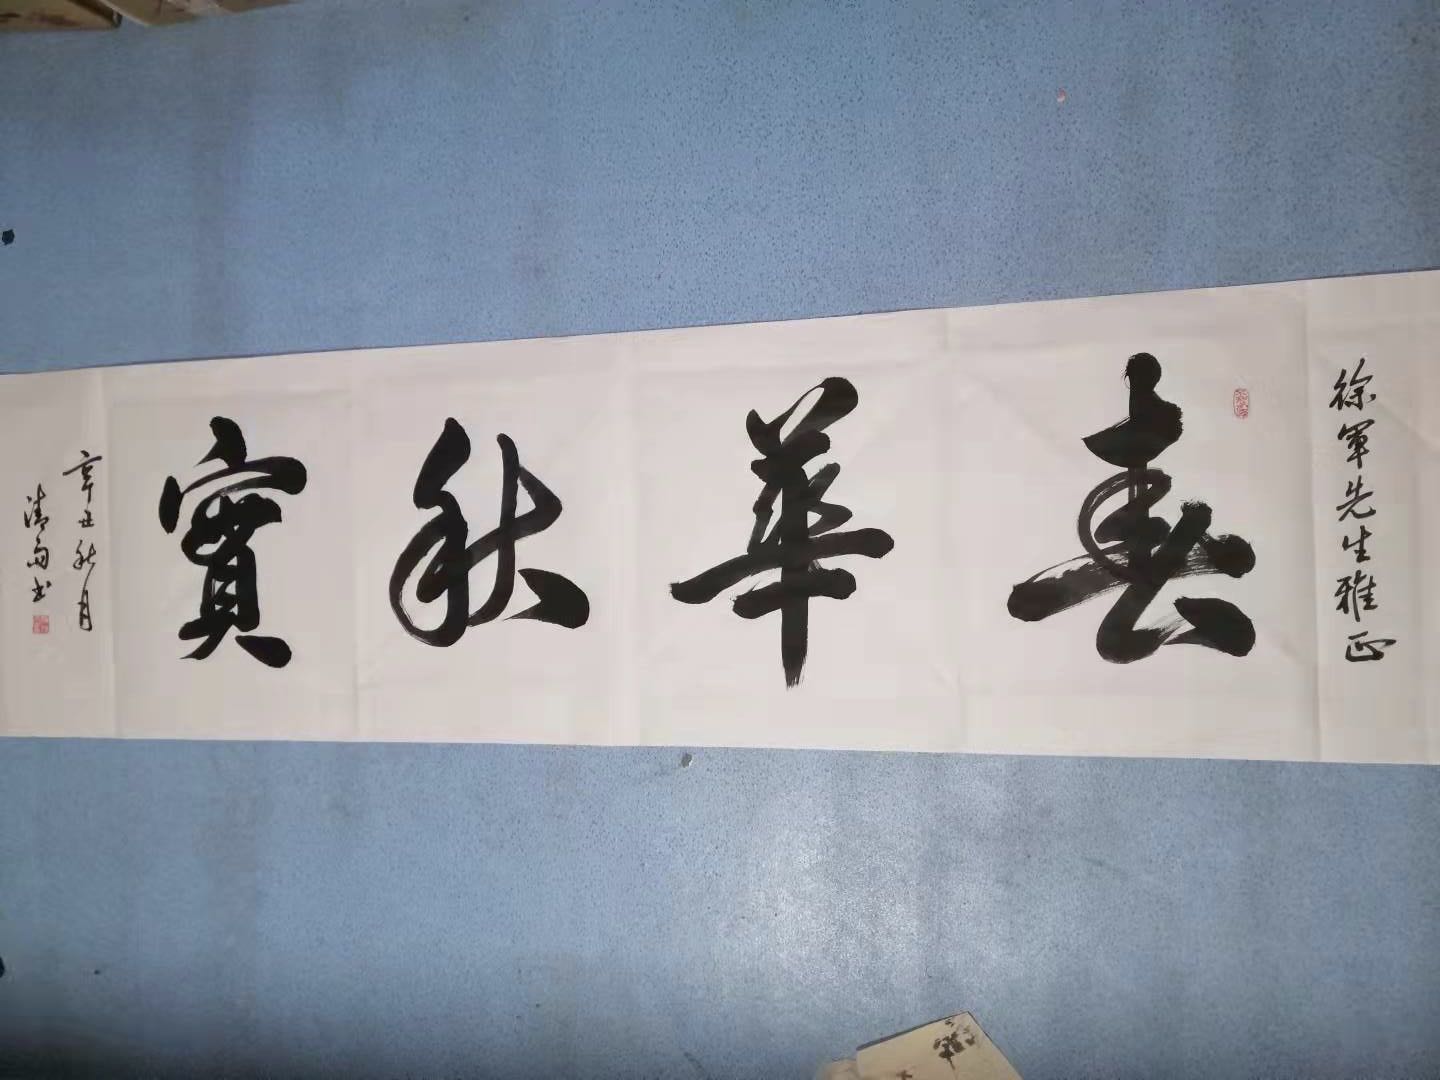 徐軍先生雅正
春華秋實
辛丑秋月
清雨书